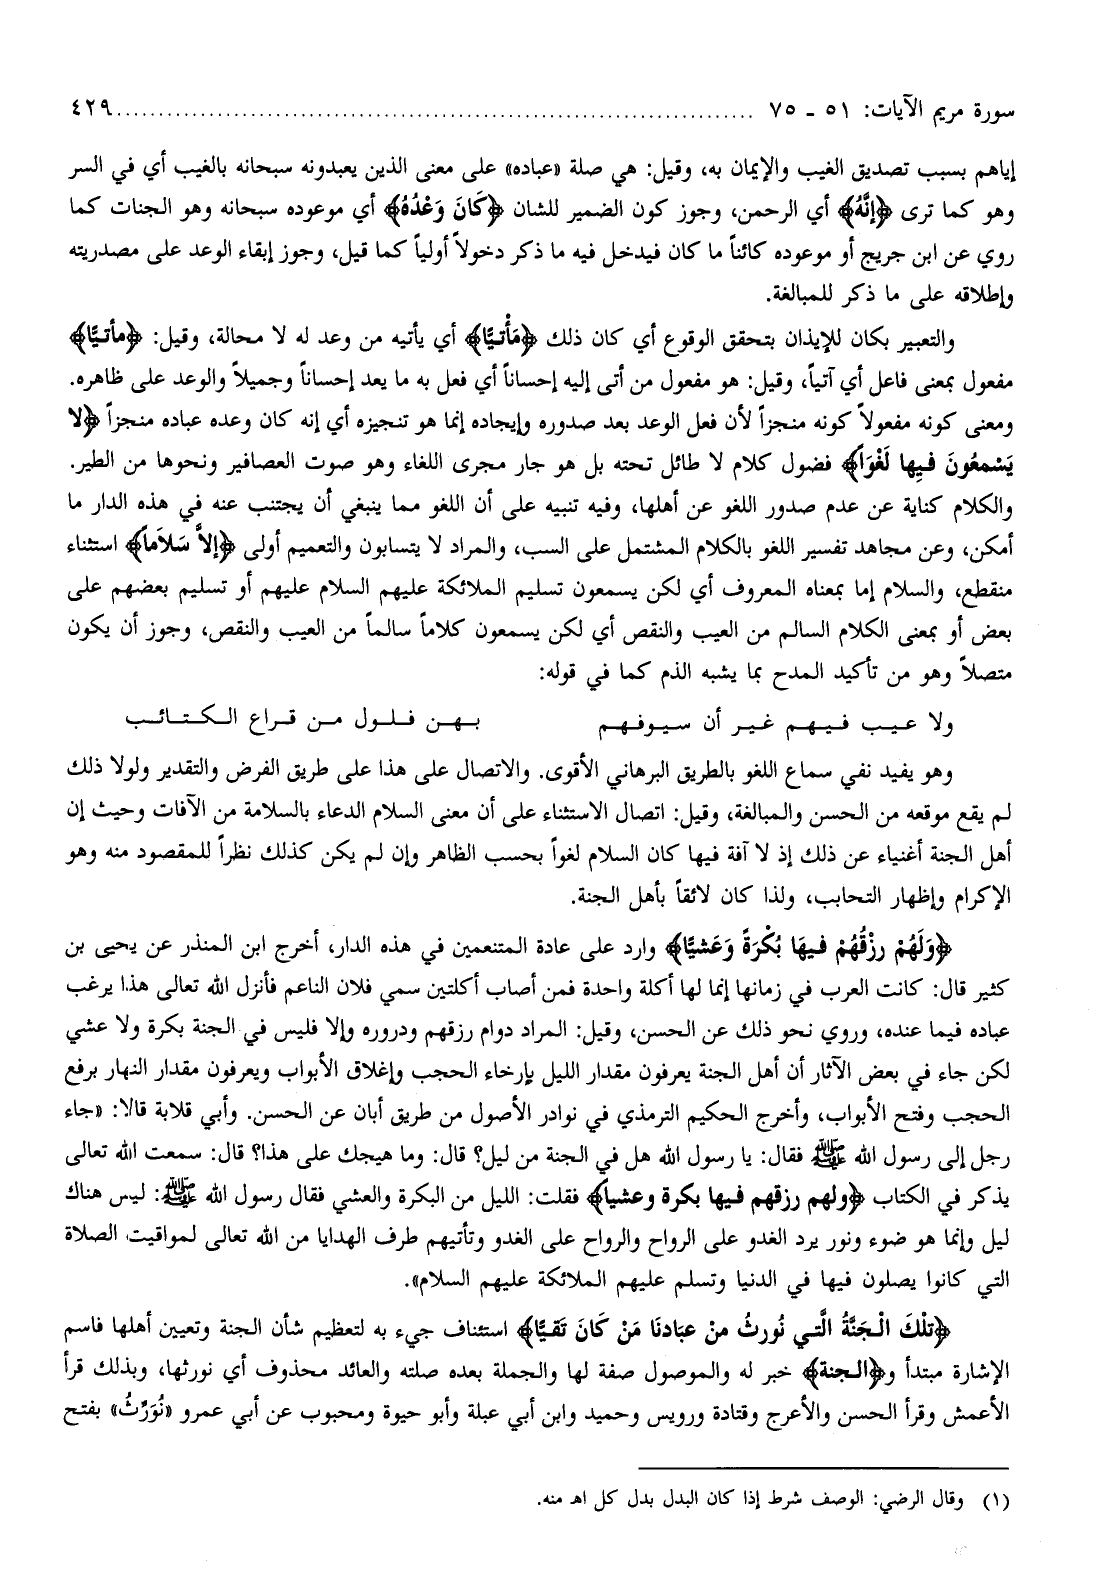 سورة مريم الآيات: ٥١ ـ ٧٥ ........................................................................... ٤٢٩
إياهم بسبب تصديق الغيب والإيمان به، وقيل: هي صلة «عباده» على معنى الذين يعبدونه سبحانه بالغيب أي في السر
وهو كما ترى ﴿إنَّهُ﴾ أي الرحمن، وجوز كون الضمير للشان ﴿كَانَ وَعْدُهُ﴾ أي موعوده سبحانه وهو الجنات كما
روي عن ابن جريج أو موعوده كائناً ما كان فيدخل فيه ما ذكر دخولاً أولياً كما قيل، وجوز إبقاء الوعد على مصدريته
وإطلاقه على ما ذكر للمبالغة.
والتعبير بكان للإيذان بتحقق الوقوع أي كان ذلك ﴿مَأْتيًّا﴾ أي يأتيه من وعد له لا محالة، وقيل: ﴿مأتيًّا﴾
مفعول بمعنى فاعل أي آتياً، وقيل: هو مفعول من أتى إليه إحساناً أي فعل به ما يعد إحساناً وجميلاً والوعد على ظاهره.
ومعنى كونه مفعولاً كونه منجزاً لأن فعل الوعد بعد صدوره وإيجاده إنما هو تنجيزه أي إنه كان وعده عباده منجزاً ﴿لا
يَسْمعُونَ فيِها لَغْوَاً﴾ فضول كلام لا طائل تحته بل هو جار مجرى اللغاء وهو صوت العصافير ونحوها من الطير.
والكلام كناية عن عدم صدور اللغو عن أهلها، وفيه تنبيه على أن اللغو مما ينبغي أن يجتنب عنه في هذه الدار ما
أمكن، وعن مجاهد تفسير اللغو بالكلام المشتمل على السب، والمراد لا يتسابون والتعميم أولى ﴿إلاَّ سَلاَماً﴾ استثناء
منقطع، والسلام إما بمعناه المعروف أي لكن يسمعون تسليم الملائكة عليهم السلام عليهم أو تسليم بعضهم على
بعض أو بمعنى الكلام السالم من العيب والنقص أي لكن يسمعون كلاماً سالماً من العيب والنقص، وجوز أن يكون
متصلاً وهو من تأكيد المدح بما يشبه الذم كما في قوله:
ولا عيب فيهم غير أن سيوفهم بهن فلول من قراع الكتائب
وهو يفيد نفي سماع اللغو بالطريق البرهاني الأقوى. والاتصال على هذا على طريق الفرض والتقدير ولولا ذلك
لم يقع موقعه من الحسن والمبالغة، وقيل: اتصال الاستثناء على أن معنى السلام الدعاء بالسلامة من الآفات وحيث إن
أهل الجنة أغنياء عن ذلك إذ لا آفة فيها كان السلام لغواً بحسب الظاهر وإن لم يكن كذلك نظراً للمقصود منه وهو
الإكرام وإظهار التحابب، ولذا كان لائقاً بأهل الجنة.
﴿وَلَهُمْ رزْقُهُمْ فيهَا بُكْرَةً وَعَشيًّا﴾ وارد على عادة المتنعمين في هذه الدار، أخرج ابن المنذر عن يحيى بن
كثير قال: كانت العرب في زمانها إنما لها أكلة واحدة فمن أصاب أكلتين سمي فلان الناعم فأنزل الله تعالى هذا يرغب
عباده فيما عنده، وروي نحو ذلك عن الحسن، وقيل: المراد دوام رزقهم ودروره وإلا فليس في الجنة بكرة ولا عشي
لكن جاء في بعض الآثار أن أهل الجنة يعرفون مقدار الليل بإرخاء الحجب وإغلاق الأبواب ويعرفون مقدار النهار برفع
الحجب وفتح الأبواب، وأخرج الحكيم الترمذي في نوادر الأصول من طريق أبان عن الحسن. وأبي قلابة قالا: «جاء
رجل إلى رسول الله ﷺ فقال: يا رسول الله هل في الجنة من ليل؟ قال: وما هيجك على هذا؟ قال: سمعت الله تعالى
يذكر في الكتاب ﴿ولهم رزقهم فيها بكرة وعشياً﴾ فقلت: الليل من البكرة والعشي فقال رسول الله ﷺ: ليس هناك
ليل وإنما هو ضوء ونور يرد الغدو على الرواح والرواح على الغدو وتأتيهم طرف الهدايا من الله تعالى لمواقيت الصلاة
التي كانوا يصلون فيها في الدنيا وتسلم عليهم الملائكة عليهم السلام».
﴿تلْكَ الْجَنَّةُ الَّتي نُورثُ منْ عبَادنَا مَنْ كَانَ تَقيًّا﴾ استئناف جيء به لتعظيم شأن الجنة وتعيين أهلها فاسم
الإشارة مبتدأ و﴿الجنة﴾ خبر له والموصول صفة لها والجملة بعده صلته والعائد محذوف أي نورثها، وبذلك قرأ
الأعمش وقرأ الحسن والأعرج وقتادة ورويس وحميد وابن أبي عبلة وأبو حيوة ومحبوب عن أبي عمرو «نُوَرِّثُ» بفتح
(١) وقال الرضي: الوصف شرط إذا كان البدل بدل كل اهـ منه.